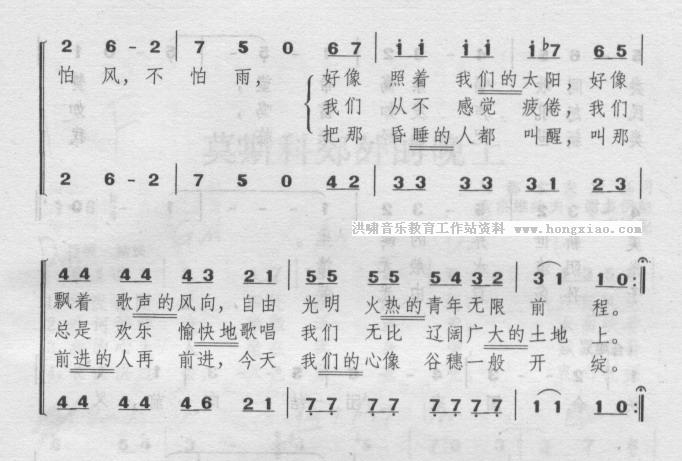 2 6-2 | 7 5 0 67 | ii ii i♭7 65
怕 风,不 怕 雨, 好像 照着 我们的太阳,好像
我们 从不 感觉 疲倦,我们
把那 昏睡的人都 叫醒,叫那
2 6-2 | 7 5 0 42 | 33 33 31 23
洪啸音乐教育工作站资料 www.hongxiao.com
44 44 43 21 | 55 55 5432 | 3 1 10 :||
飘着 歌声的风向,自由 光明 火热的青年无限 前 程。
总是 欢乐 愉快地歌唱 我们 无比 辽阔广大的土地 上。
前进的人再 前进,今天 我们的心像 谷穗一般 开 绽。
44 44 43 21 | 77 77 7777 | 1 1 10 :||